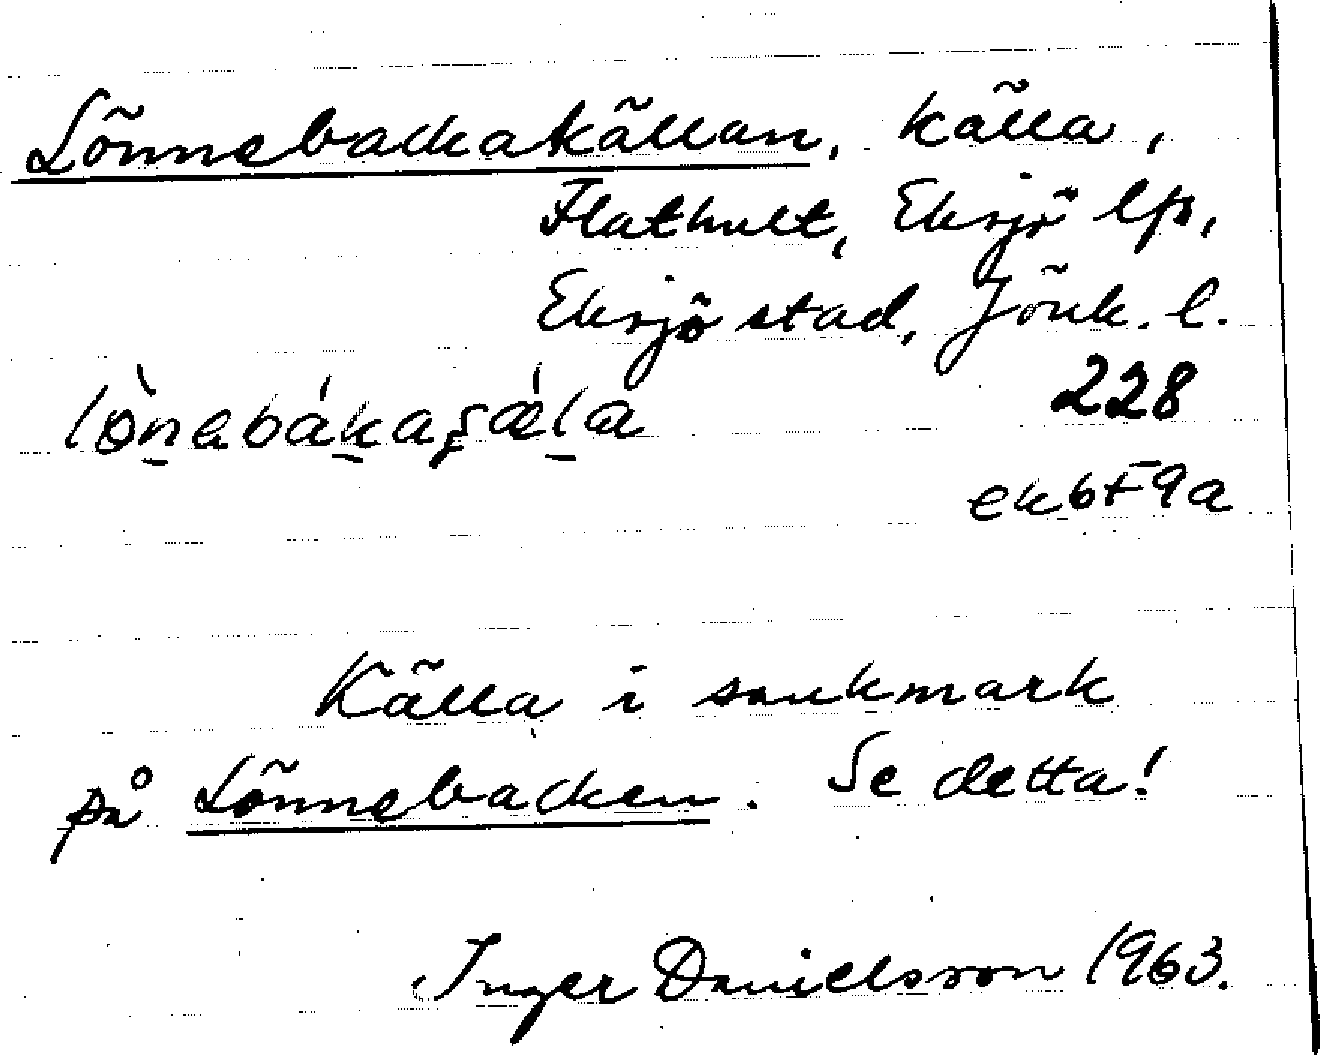 Lönnebackakällan, källa,
Flathult, Eksjö lfs,
Eksjö stad, Jönk. l.
lònabákaʂǽla 228
ek6F9a
Källa i sankmark
på Lönnebacken. Se detta!
Inger Danielsson 1963.